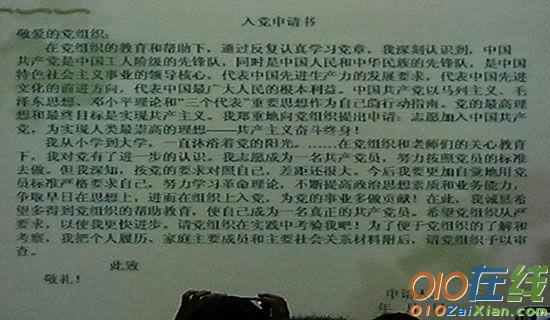 入党申请书
敬爱的党组织:
在党组织的教育和帮助下,通过反复认真学习党章,我深刻认识到,中国
共产党是中国工人阶级的先锋队,同时是中国人民和中华民族的先锋队,是中国
特色社会主义事业的领导核心,代表中国先进生产力的发展要求,代表中国先进
文化的前进方向,代表中国最广大人民的根本利益。中国共产党以马列主义、毛
泽东思想、邓小平理论和“三个代表”重要思想作为自己的行动指南。党的最高理
想和最终目标是实现共产主义。我郑重地向党组织提出申请:志愿加入中国共产
党,为实现人类最崇高的理想——共产主义奋斗终身!
我从小学到大学,一直沐浴着党的阳光。……在党组织和老师们的关心教育
下,我对党有了进一步的认识。我志愿成为一名共产党员,努力按照党员的标准
去做。但我深知,按党的要求对照自己,差距还很大。今后我要更加自觉地用党
员标准严格要求自己,努力学习革命理论,不断提高政治思想素质和业务能力,
争取早日在思想上,进而在组织上入党,为党的事业多做贡献!在此,我诚恳希
望多得到党组织的帮助教育,使自己成为一名真正的共产党员。希望党组织从严
要求,以使我更快进步。请党组织在实践中考验我吧!为了便于党组织的了解和
考察,我把个人履历、家庭主要成员和主要社会关系材料附后,请党组织予以审
查。
此致
敬礼!
申请人
年
010在线
010ZaiXian.com